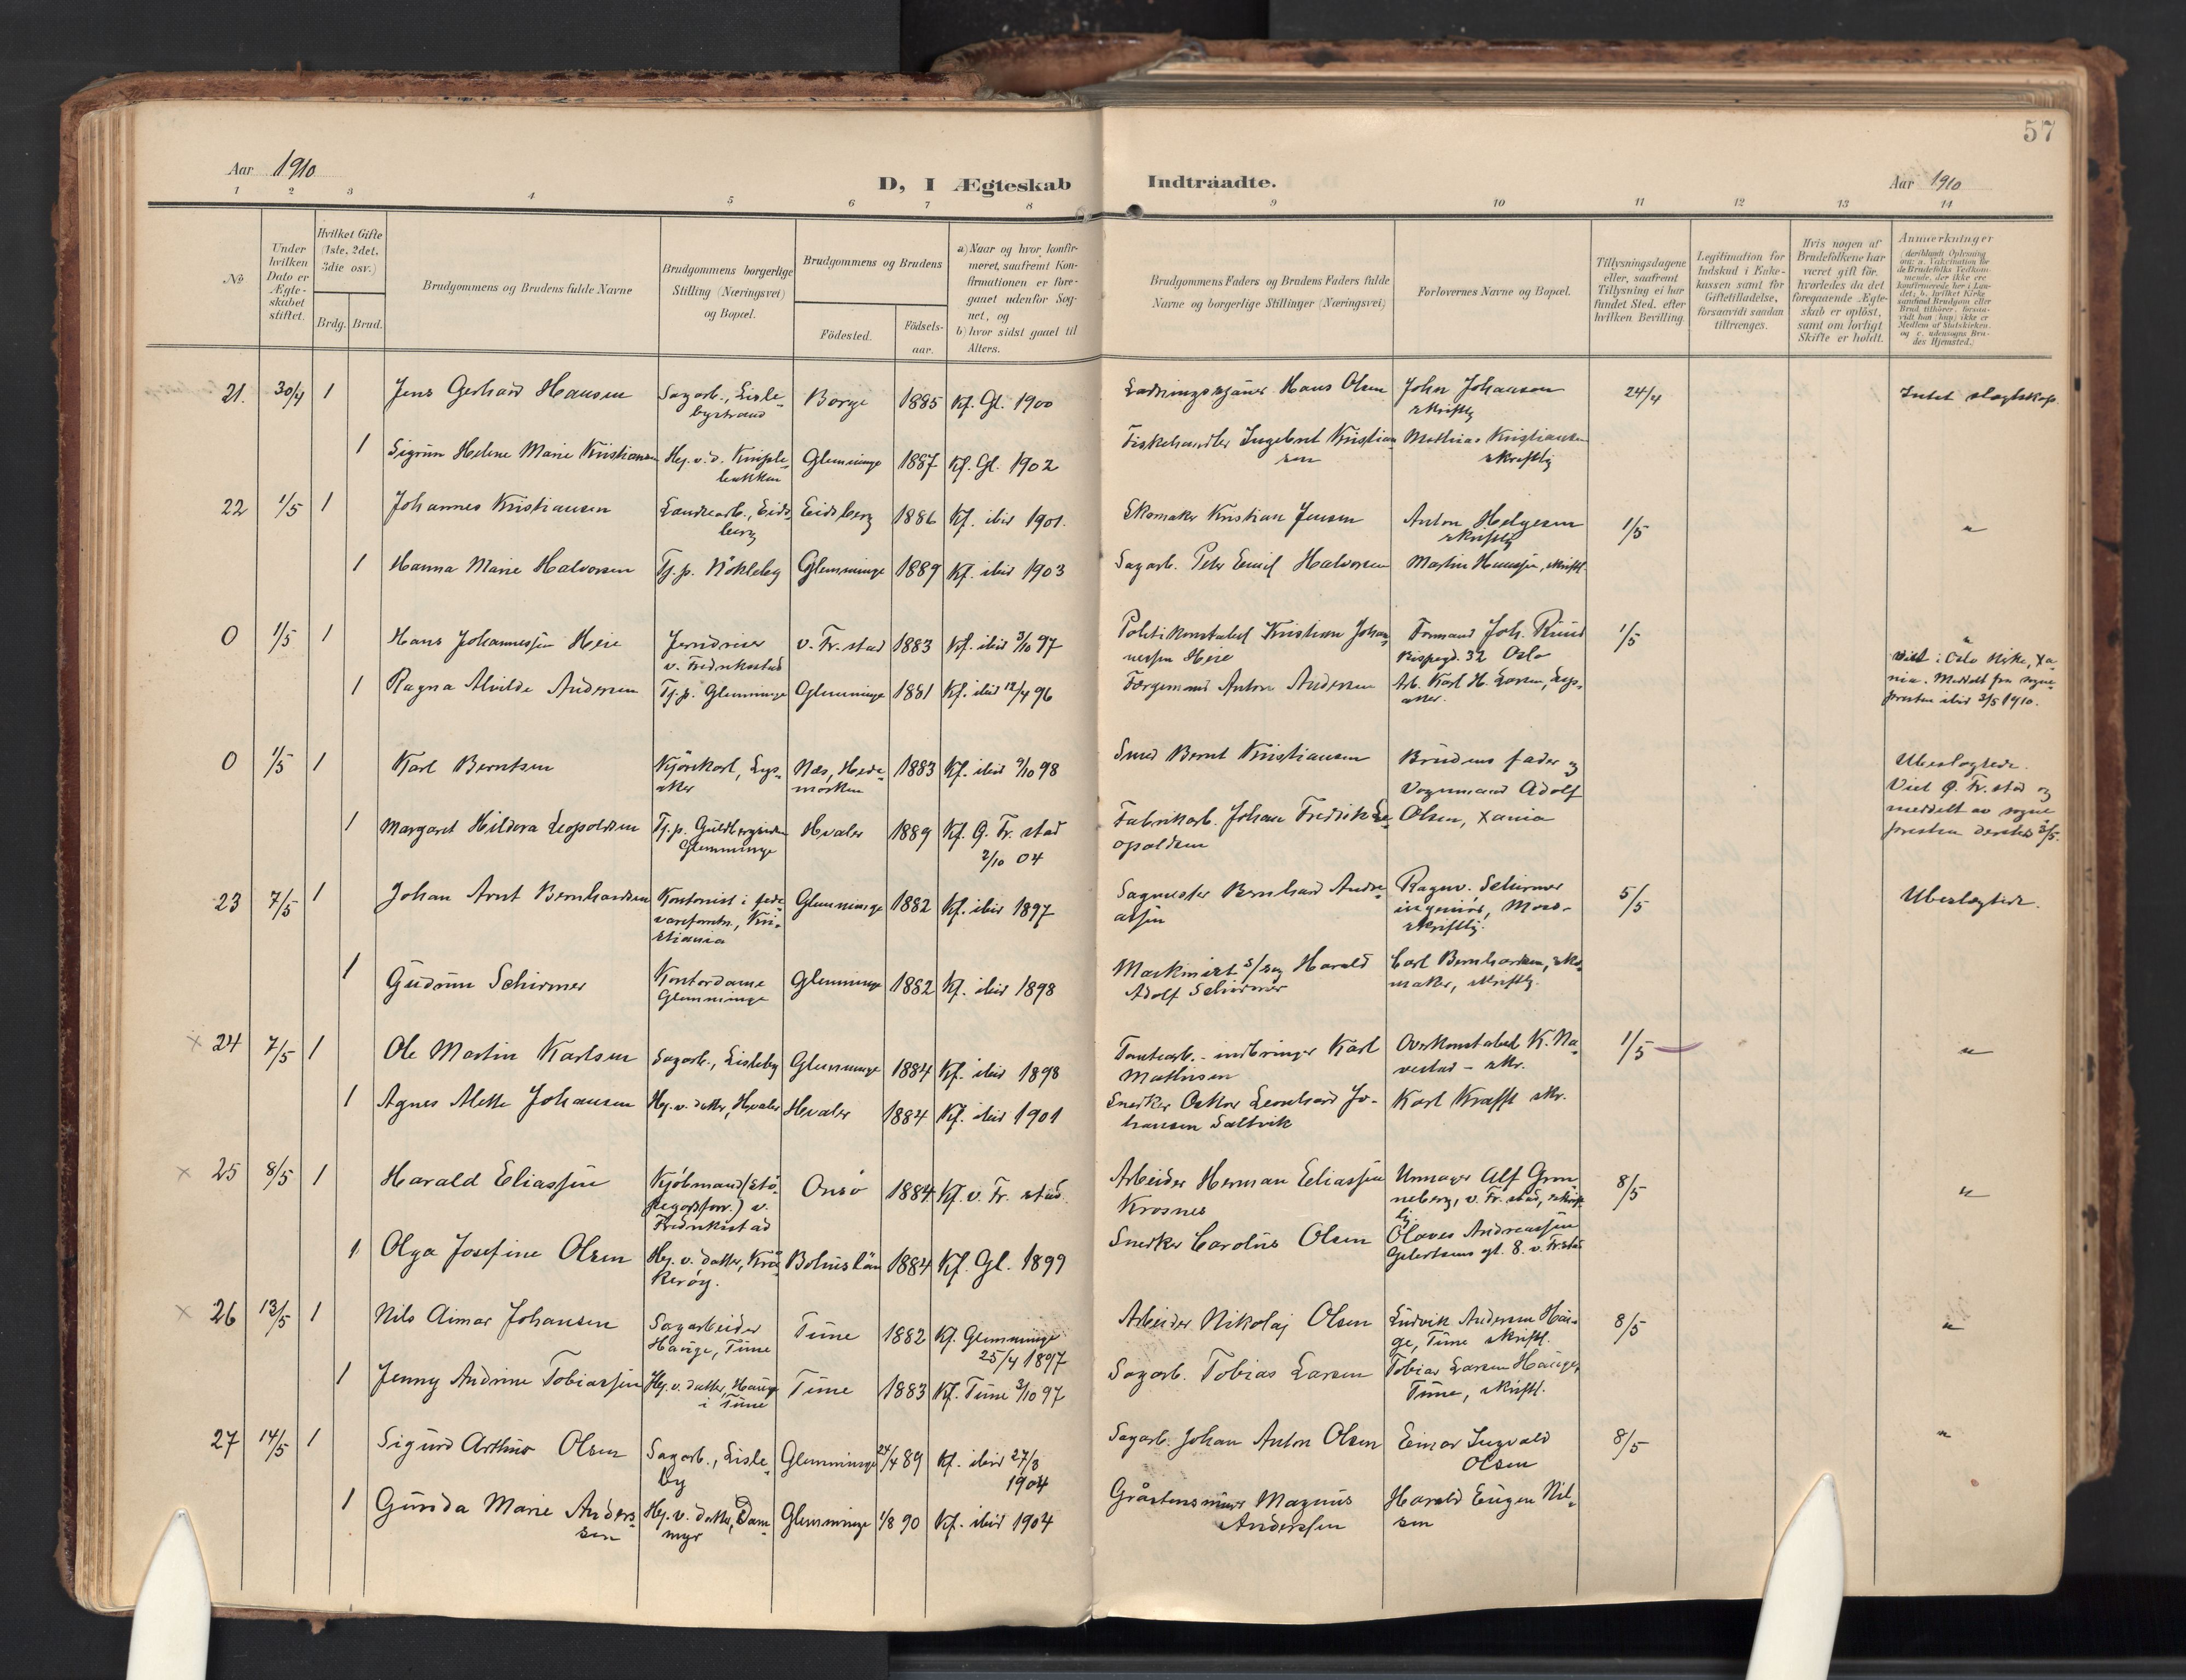 57
Aar 1910
D, I Ægteskab Indtraadte.
Aar 1910
1 2 3 4 5 6 7 8 9 10 11 12 13 14
№
Under hvilken Dato er Ægteskabet stiftet.
Hvilket Gifte (1ste, 2det, 3die osv.)
Brdg. Brud.
Brudgommens og Brudens fulde Navne
Brudgommens borgerlige Stilling (Næringsvei) og Bopæl.
Brudgommens og Brudens
Födested.
Födselsaar.
a) Naar og hvor konfirmeret, saafremt Konfirmationen er foregaaet udenfor Sognet, og
b) hvor sidst gaaet til Alters.
Brudgommens Faders og Brudens Faders fulde Navne og borgerlige Stillinger (Næringsvei)
Forlovernes Navne og Bopæl.
Tillysningsdagene eller, saafremt Tillysning ei har fundet Sted, efter hvilken Bevilling
Legitimation for Indskud i Enkekassen samt for Giftetilladelse, forsaavidt saadan tiltrænges.
Hvis nogen af Brudefolkene har været gift för, hvorledes da det foregaaende Ægteskab er oplöst, samt om lovligt Skifte er holdt.
Anmærkninger
21. 30/4 1 Jens Gerhard Hansen Sagarb., Lislebystrand Borge 1885 Kf. Gl. 1900 Hans Olsen John Johansen skriftlig 24/4 Intet slægtskap
1 Sigrun Helene Marie Kristiansen Hj. v. d. Glemminge 1887 Kf. Gl. 1902 Fiskehandler Ingebret Kristiansen Mathias Kristiansen skriftlig
22 1/5 1 Johannes Kristiansen Eidsberg Eidsberg 1886 Kf. ibid 1901. Skomaker Kristian Jensen Anton Helgesen skriftlig 1/5 "
1 Hanna Marie Halvorsen Tj. p. Nökleby Glemminge 1889 Kf. ibid 1903 Sagarb. Peter Emil Halvorsen Martin Hansen, skriftl.
0 1/5 1 Hans Johannessen Heie Jerndreier v. Fredrikstad v. Fr.stad 1883 Kf. ibid 3/10 97 Politikonstabel Kristian Johannessen Heie Formand Joh. Ruud Bispegd. 32 Oslo 1/5 " Viet i Oslo kirke, Xania. Meddelt fra sognepresten ibid 3/5 1910.
1 Ragna Alvilde Andersen Tj. p. Glemminge Glemminge 1881 Kf. ibid 12/4 96 Færgemand Anton Andersen Arb. Karl H. Larsen, Lysaker.
0 1/5 1 Karl Berntsen Kjörekarl, Lysaker Næs, Hedemarken 1883 Kf. ibid 9/10 98 Smed Bernt Kristiansen Brudens fader og Vognmand Adolf Olsen, Xania Ubeslægtede. Viet Ø. Fr.stad og meddelt av sognepresten dersteds 3/5.
1 Margaret Hildora Leopoldsen Tj. p. Glemminge Hvaler 1889 Kf. Ø. Fr. stad 2/10 04 Fabrikarb. Johan Fredrik Leopoldsen
23 7/5 1 Johan Arnt Bernhardsen Kontorist i Kristiania Glemminge 1882 Kf. ibid 1897 Sagmester Bernhard Andreassen Ragnv. Schirmer ingeniör, Moss - skriftlig. 5/5 Ubeslægtede.
1 Gudrun Schirmer Kontordame Glemminge Glemminge 1882 Kf. ibid 1898 Maskinist Harald Adolf Schirmer Carl Bernhardsen, skomaker, skriftlig.
× 24 7/5 1 Ole Martin Karlsen Sagarb., Lisleby Glemminge 1884 Kf. ibid 1898 Tomtearb. - indbringer Karl Mathisen Overkonstabel K. Navestad - skr. 1/5 "
1 Agnes Alette Johansen Hj. v. datter, Hvaler Hvaler 1884 Kf. ibid 1901 Snedker Oskar Leonhard Johansen Saltvik Karl Krafft skr.
× 25 8/5 1 Harald Eliassen Kjöbmand v. Fredrikstad Onsö 1884 Kf. v. Fr. stad. Arbeider Herman Eliassen Krosnes Urmager Alf Grønneberg, v. Fr. stad, skriftlig. 8/5 "
1 Olga Josefine Olsen Hj. v. datter, Kråkeröy. Bohuslän 1884 Kf. Gl. 1899 Snedker Carolus Olsen Olaves Andreassen gt. 8. v. Fr.stad
× 26 13/5 1 Nils Aimar Johansen Sagarbeider Hauge, Tune Tune 1882 Kf. Glemminge 25/4 1897 Arbeider Nikolaj Olsen Ludvik Andersen Hauge, Tune skriftl. 8/5 "
1 Jenny Andrine Tobiassen Hj. v. datter, Hauge i Tune Tune 1883 Kf. Tune 3/10 97 Sagarb. Tobias Larsen Tobias Larsen Hauge, Tune, skriftl.
27 14/5 1 Sigurd Arthur Olsen Sagarb., Lisleby Glemminge 24/4 89 Kf. ibid 27/3 1904 Sagarb. Johan Anton Olsen Einar Ingvald Olsen 8/5 "
1 Gunda Marie Anderssen Hj. v. datter, Dammyr Glemminge 1/8 90 Kf. ibid 1904 Magnus Anderssen Harald Eugen Nilsen